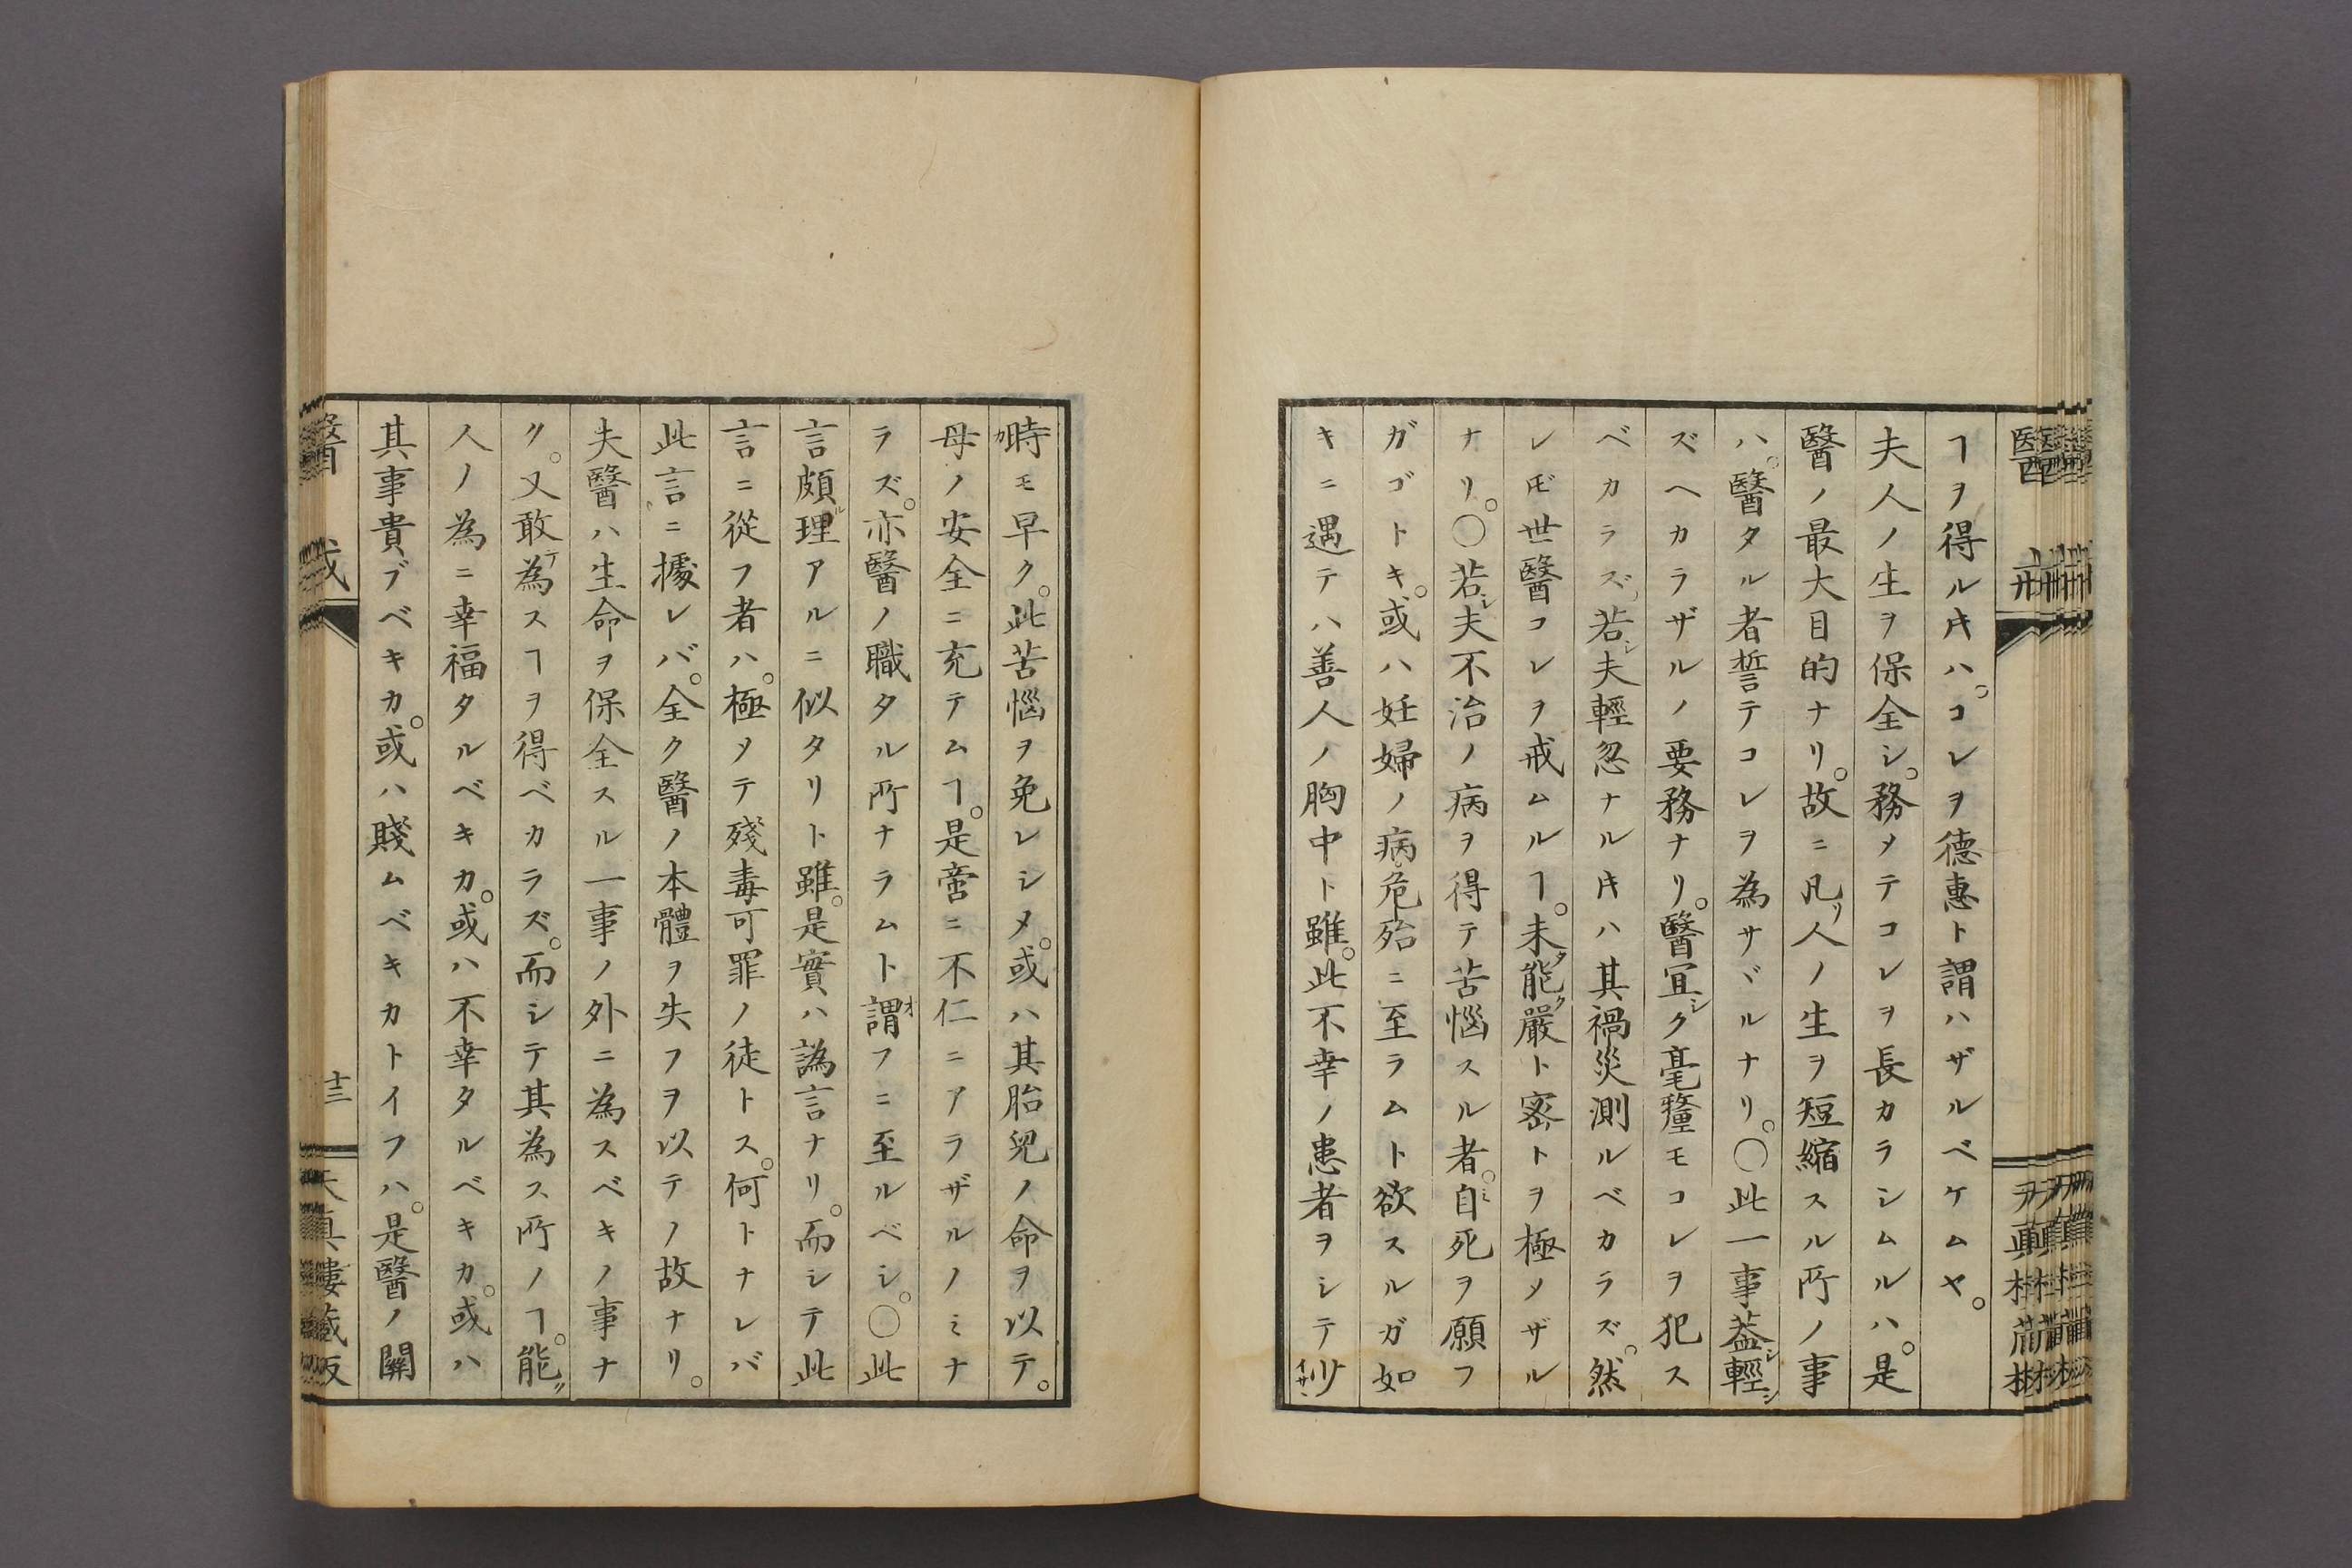 ヿヲ得ル𪜈ハ。コレヲ德惠ト謂ハザルベケムヤ。
夫人ノ生ヲ保全シ。務メテコレヲ長カラシムルハ。是
醫ノ最大目的ナリ。故ニ凡リ人ノ生ヲ短縮スル所ノ事
ハ。醫タル者誓テコレヲ為サヾルナリ。○此一事葢シ輕シ
ズヘカラザルノ要務ナリ。醫宜シク毫釐モコレヲ犯ス
ベカラズ。若シ夫輕忽ナル𪜈ハ其禍災測ルベカラズ。然
レ𪜈世醫コレヲ戒ムルヿ。未タ能ク嚴ト密トヲ極メザル
ナリ。○若シ夫不治ノ病ヲ得テ苦惱スル者。自ミ死ヲ願フ
ガゴトキ。或ハ妊婦ノ病危殆ニ至ラムト欲スルガ如
キニ遇テハ善人ノ胸中ト雖。此不幸ノ患者ヲシテ少イサヽ
カ時モ早ク。此苦惱ヲ免レシメ。或ハ其胎兒ノ命ヲ以テ。
母ノ安全ニ充テムヿ。是啻ニ不仁ニアラザルノミナ
ラズ。亦醫ノ職タル所ナラムト謂オフニ至ルベシ。○此
言頗ル理アルニ似タリト雖。是實ハ譌言ナリ。而シテ此
言ニ從フ者ハ。極メテ殘毒可罪ノ徒トス。何トナレバ
此言ニ據レバ。全ク醫ノ本體ヲ失フヲ以テノ故ナリ。
夫醫ハ生命ヲ保全スル一事ノ外ニ為スベキノ事ナ
ク。又敢テ為スヿヲ得ベカラズ。而シテ其為ス所ノヿ。能ク
人ノ為ニ幸福タルベキカ。或ハ不幸タルベキカ。或ハ
其事貴ブベキカ。或ハ賤ムベキカトイフハ。是醫ノ關
醫戒 十三 天真樓藏版